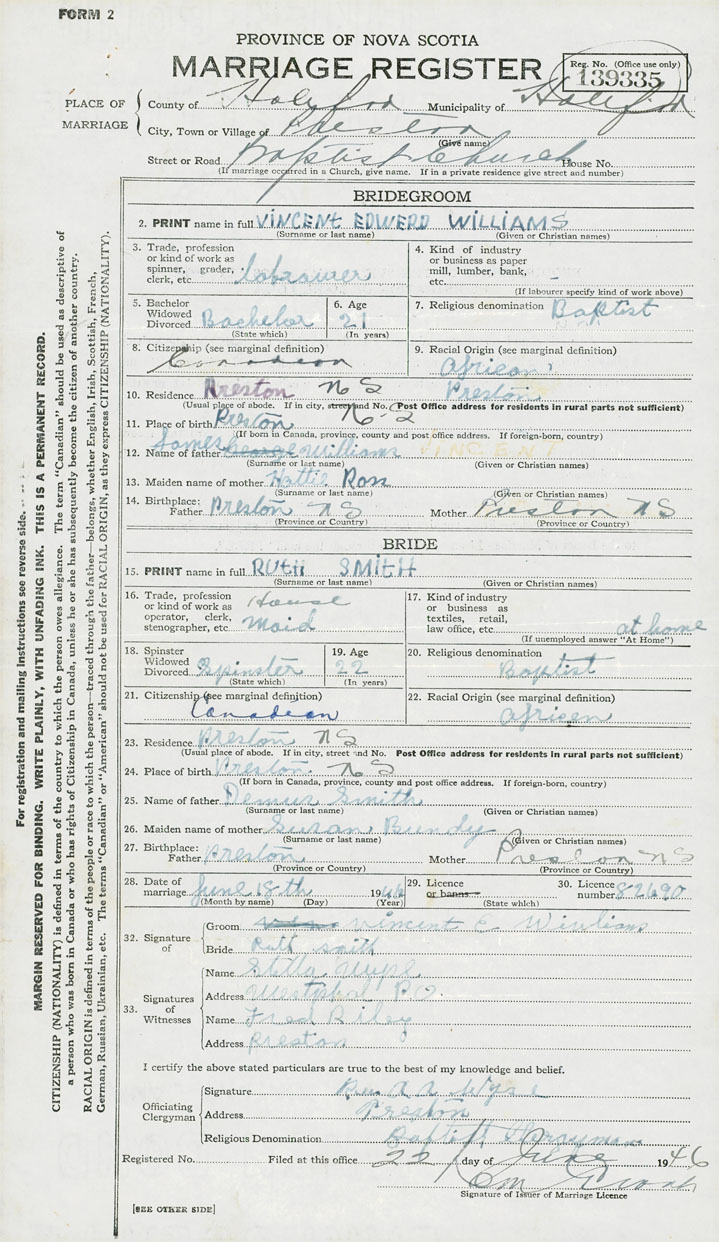 FORM 2
PROVINCE OF NOVA SCOTIA
MARRIAGE REGISTER
Reg. No. (Office use only)
139335
PLACE OF MARRIAGE
County of Halifax Municipality of Halifax
City, Town or Village of Preston
(Give name)
Street or Road Baptist Church House No.
(If marriage occurred in a Church, give name. If in a private residence give street and number)
BRIDEGROOM
2. PRINT name in full VINCENT EDWERD WILLIAMS
(Surname or last name) (Given or Christian names)
3. Trade, profession or kind of work as spinner, grader, clerk, etc. Labrawer
4. Kind of industry or business as paper mill, lumber, bank, etc.
(If labourer specify kind of work above)
5. Bachelor Widowed Divorced Bachelor
(State which)
6. Age 21
(In years)
7. Religious denomination Baptist
8. Citizenship (see marginal definition)
Canadean
9. Racial Origin (see marginal definition)
African
10. Residence Preston N S Preston
(Usual place of abode. If in city, street and No. Post Office address for residents in rural parts not sufficient)
11. Place of birth Preston N-S
(If born in Canada, province, county and post office address. If foreign-born, country)
12. Name of father James George Williams VINCENT
(Surname or last name) (Given or Christian names)
13. Maiden name of mother Hattie Ross
(Surname or last name) (Given or Christian names)
14. Birthplace: Father Preston N S Mother Preston N S
(Province or Country) (Province or Country)
BRIDE
15. PRINT name in full RUTH SMITH
(Surname or last name) (Given or Christian names)
16. Trade, profession or kind of work as operator, clerk, stenographer, etc. House Maid
17. Kind of industry or business as textiles, retail, law office, etc. at home
(If unemployed answer "At Home")
18. Spinster Widowed Divorced Spinster
(State which)
19. Age 22
(In years)
20. Religious denomination
Baptist
21. Citizenship (see marginal definition)
Canadean
22. Racial Origin (see marginal definition)
African
23. Residence Preston N S
(Usual place of abode. If in city, street and No. Post Office address for residents in rural parts not sufficient)
24. Place of birth Preston N S
(If born in Canada, province, county and post office address. If foreign-born, country)
25. Name of father Smith
(Surname or last name) (Given or Christian names)
26. Maiden name of mother Susan Bundy
(Surname or last name) (Given or Christian names)
27. Birthplace: Father Preston Mother Preston N S
(Province or Country) (Province or Country)
28. Date of marriage June 18th 1946
(Month by name) (Day) (Year)
29. Licence or banns
(State which)
30. Licence number 82690
32. Signature of
Groom Vincent E. Williams
Bride Ruth Smith
33. Signatures of Witnesses
Name Stella
Address Westphal P.O.
Name Fred Riley
Address Preston
I certify the above stated particulars are true to the best of my knowledge and belief.
Officiating Clergyman
Signature Rev A A Wyse
Address Preston
Religious Denomination Baptist
Registered No. Filed at this office 22 day of June 1946
Signature of Issuer of Marriage Licence
[SEE OTHER SIDE]
For registration and mailing instructions see reverse side.
MARGIN RESERVED FOR BINDING. WRITE PLAINLY, WITH UNFADING INK. THIS IS A PERMANENT RECORD.
CITIZENSHIP (NATIONALITY) is defined in terms of the country to which the person owes allegiance. The term "Canadian" should be used as descriptive of
a person who was born in Canada or who has rights of Citizenship in Canada, unless he or she has subsequently become the citizen of another country.
RACIAL ORIGIN is defined in terms of the people or race to which the person—traced through the father—belongs, whether English, Irish, Scottish, French,
German, Russian, Ukrainian, etc. The terms "Canadian" or "American" should not be used for RACIAL ORIGIN, as they express CITIZENSHIP (NATIONALITY).